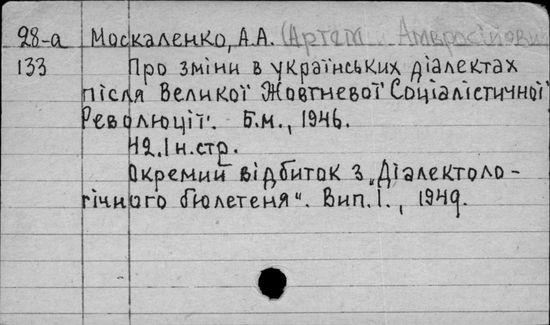 28-а Москаленко, А.А. (Артем Амвросійович
133 Про зміни в українських діалектах
після Великої Жовтневої Соціалістичної
Революції. Б.м., 1946.
42.1 н.стр.
Окремий відбиток з „Діалектоло-
гічного бюлетеня". Вип. I., 1949.